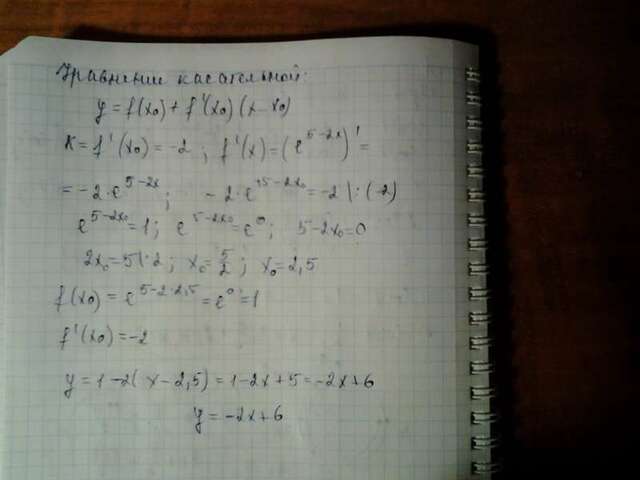 Уравнение касательной:
y = f(x₀) + f'(x₀)(x - x₀)
K = f'(x₀) = -2 ; f'(x) = (e^(5-2x))' =
= -2·e^(5-2x) ; -2·e^(5-2x₀) = -2 |:(-2)
e^(5-2x₀) = 1 ; e^(5-2x₀) = e⁰ ; 5-2x₀ = 0
2x₀ = 5 |:2 ; x₀ = 5/2 ; x₀ = 2,5
f(x₀) = e^(5-2·2,5) = e⁰ = 1
f'(x₀) = -2
y = 1 - 2(x - 2,5) = 1 - 2x + 5 = -2x + 6
y = -2x + 6